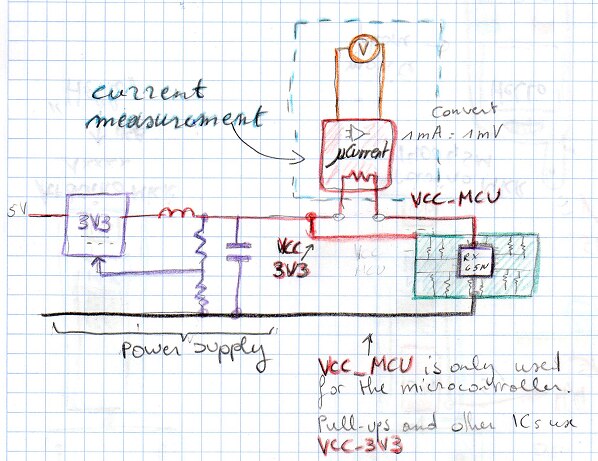 V
current
measurement
Convert
1mA = 1mV
µCurrent
VCC-MCU
5V
3V3
VCC
3V3
RX
65N
power supply
VCC_MCU is only used
for the microcontroller.
Pull-ups and other ICs use
VCC-3V3